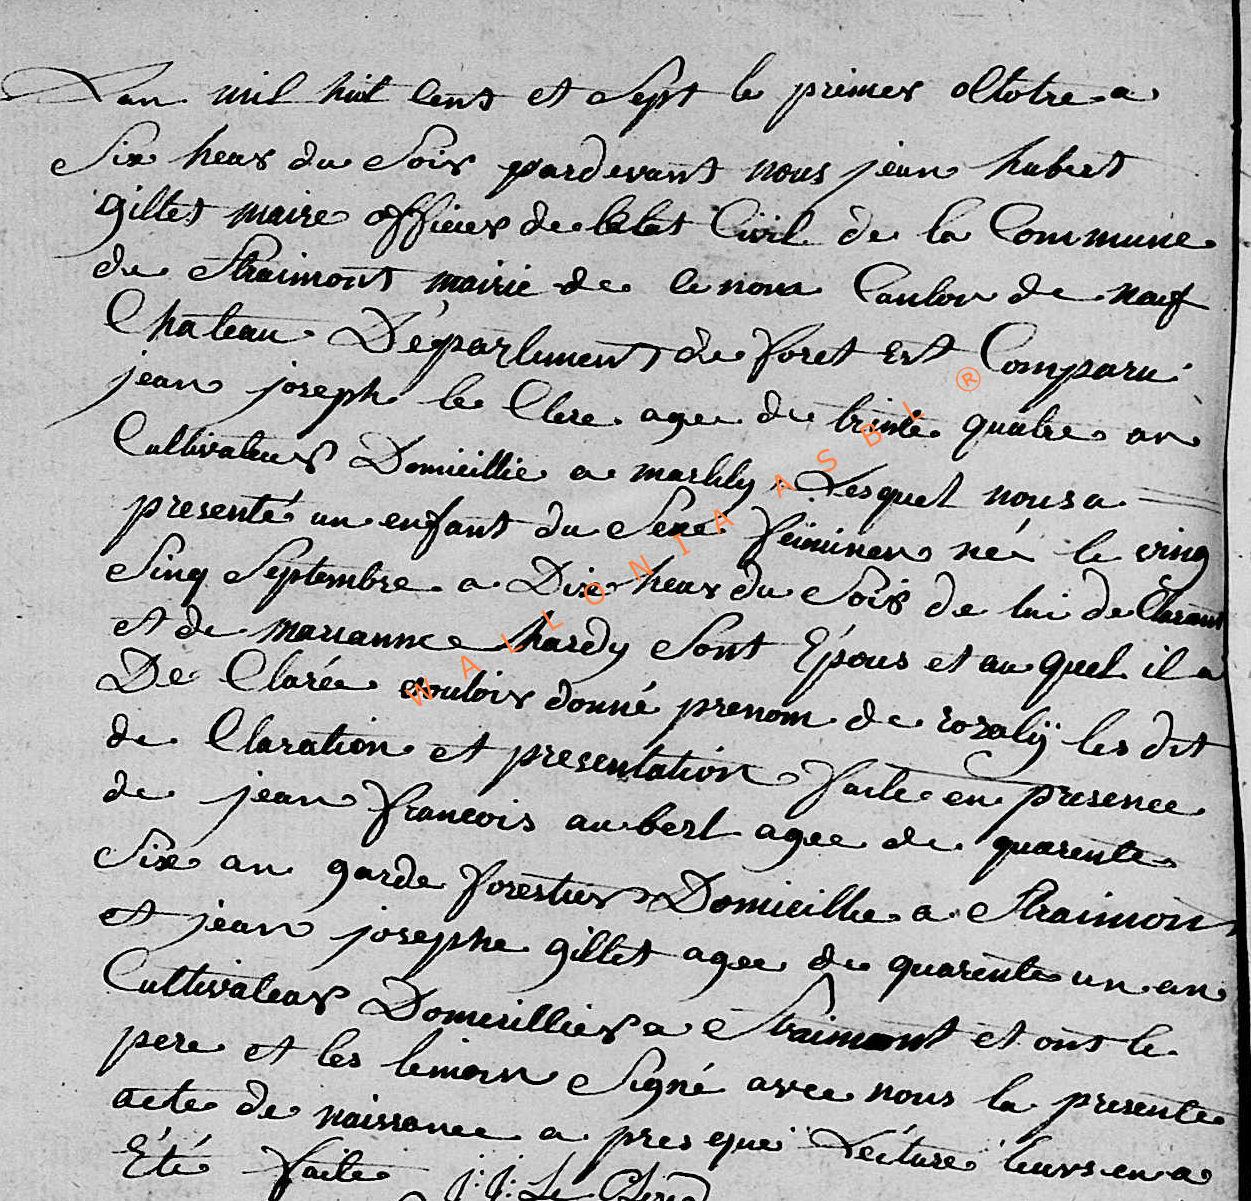 Lan mil huit cens et Sept le primer octobre a
Six heur du Soir pardevant nous jean hubert
gillet maire officier de letat Civil de la Commune
de Straimont mairie de le noux Canton de neuf
Chateau Département de foret Est Comparu
jean joseph le Clere agee de trente quatre an
Cultivateur Domicillie a martily Lesquel nous a
presenté un enfant du Sexe feiminen né le ving
Sinq Septembre a Dix heur du Soir de lui de Clarant
et de marianne hardy Sont Épous et au quel il a
De Clarée vouloir donné prenom de rozalÿ les dit
de Claration et presentation faite en presence
de jean francois aubert agee de quarente
Six an garde forestier Domicillie a Straimont
et jean josephe gillet agee de quarente un an
Cultivateur Domicillier a Straimont et ont le
pere et les temoin Signé avec nous la presente
acte de naissance a pres que Lecture leurs en a
Été faite J: J: Le Clere
WALLONIA ASBL ®